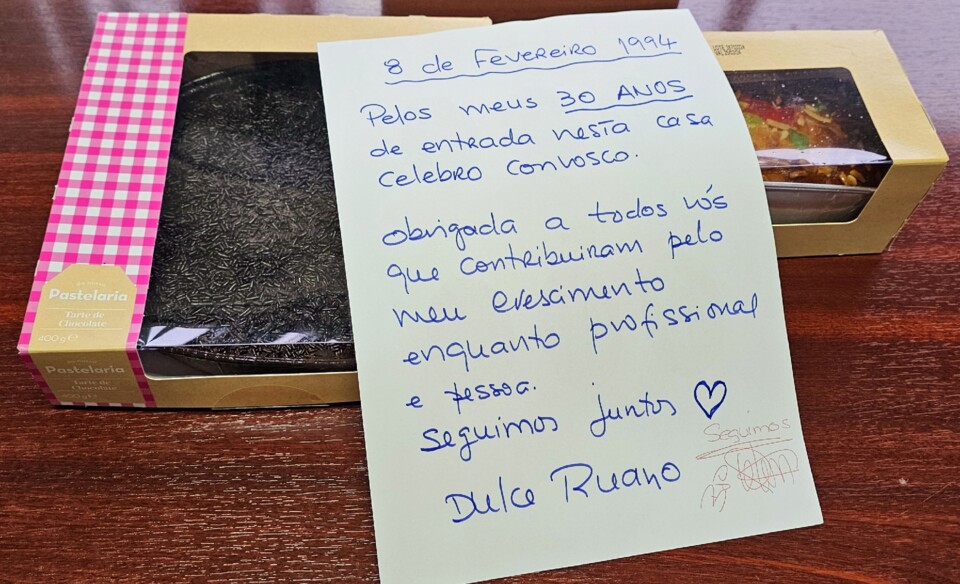 8 de Fevereiro 1994
Pelos meus 30 ANOS
de entrada nesta casa
celebro convosco.
obrigada a todos vós
que contribuiram pelo
meu crescimento
enquanto profissional
e pessoa.
seguimos juntos ♡
Seguimos
Dulce Ruano
Pastelaria
Tarte de
Chocolate
400g e
Pastelaria
Tarte de
Chocolate
400g e